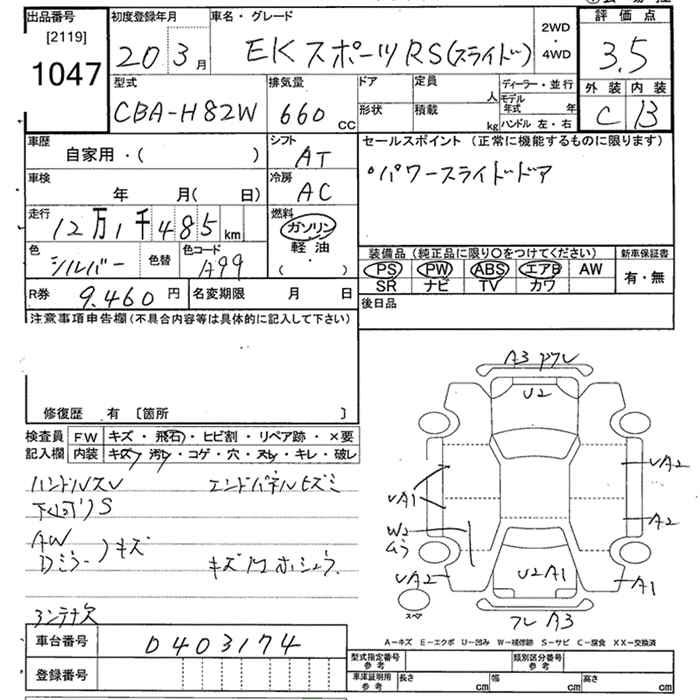 出品番号 初度登録年月 車名・グレード 2WD・4WD 評価点
[2119]
1047 20 3月 EKスポーツRS(スライド) 3.5
型式 排気量 ドア 定員 人 ディーラー・並行 外装 内装
CBA-H82W 660 CC 形状 積載 kg モデル年式 年 C B
ハンドル 左・右
車歴 シフト セールスポイント (正常に機能するものに限ります)
自家用・( ) AT ・パワースライドドア
車検 冷房
年 月( 日) AC
走行 燃料
12万1千485km ガソリン
軽油
( ・ )
色 色替 色コード 装備品 (純正品に限り○をつけてください) 新車保証書
シルバー A99 PS PW ABS エアB AW 有・無
SR ナビ TV カワ
R券 9,460円 名変期限 月 日 後日品
注意事項申告欄(不具合内容等は具体的に記入して下さい)
修復歴 有 〔箇所 〕
検査員 FW キズ・飛石・ヒビ割・リペア跡・×要
記入欄 内装 キズ・汚レ・コゲ・穴・スレ・キレ・破レ
ハンドルスレ エンドパネルヒズミ
S
AW
Dミラー )キズ キズ
アンテナ欠
A3
U2
UA2
UA1
A2
W2
UA2
U2A1
A1
A3
スペア
A-キズ E-エクボ U-凹み W-補修跡 S-サビ C-腐食 XX-交換済
車台番号 0403174
登録番号
型式指定番号 参考 類別区分番号 参考
車庫証明用 参考 長さ cm 幅 cm 高さ cm